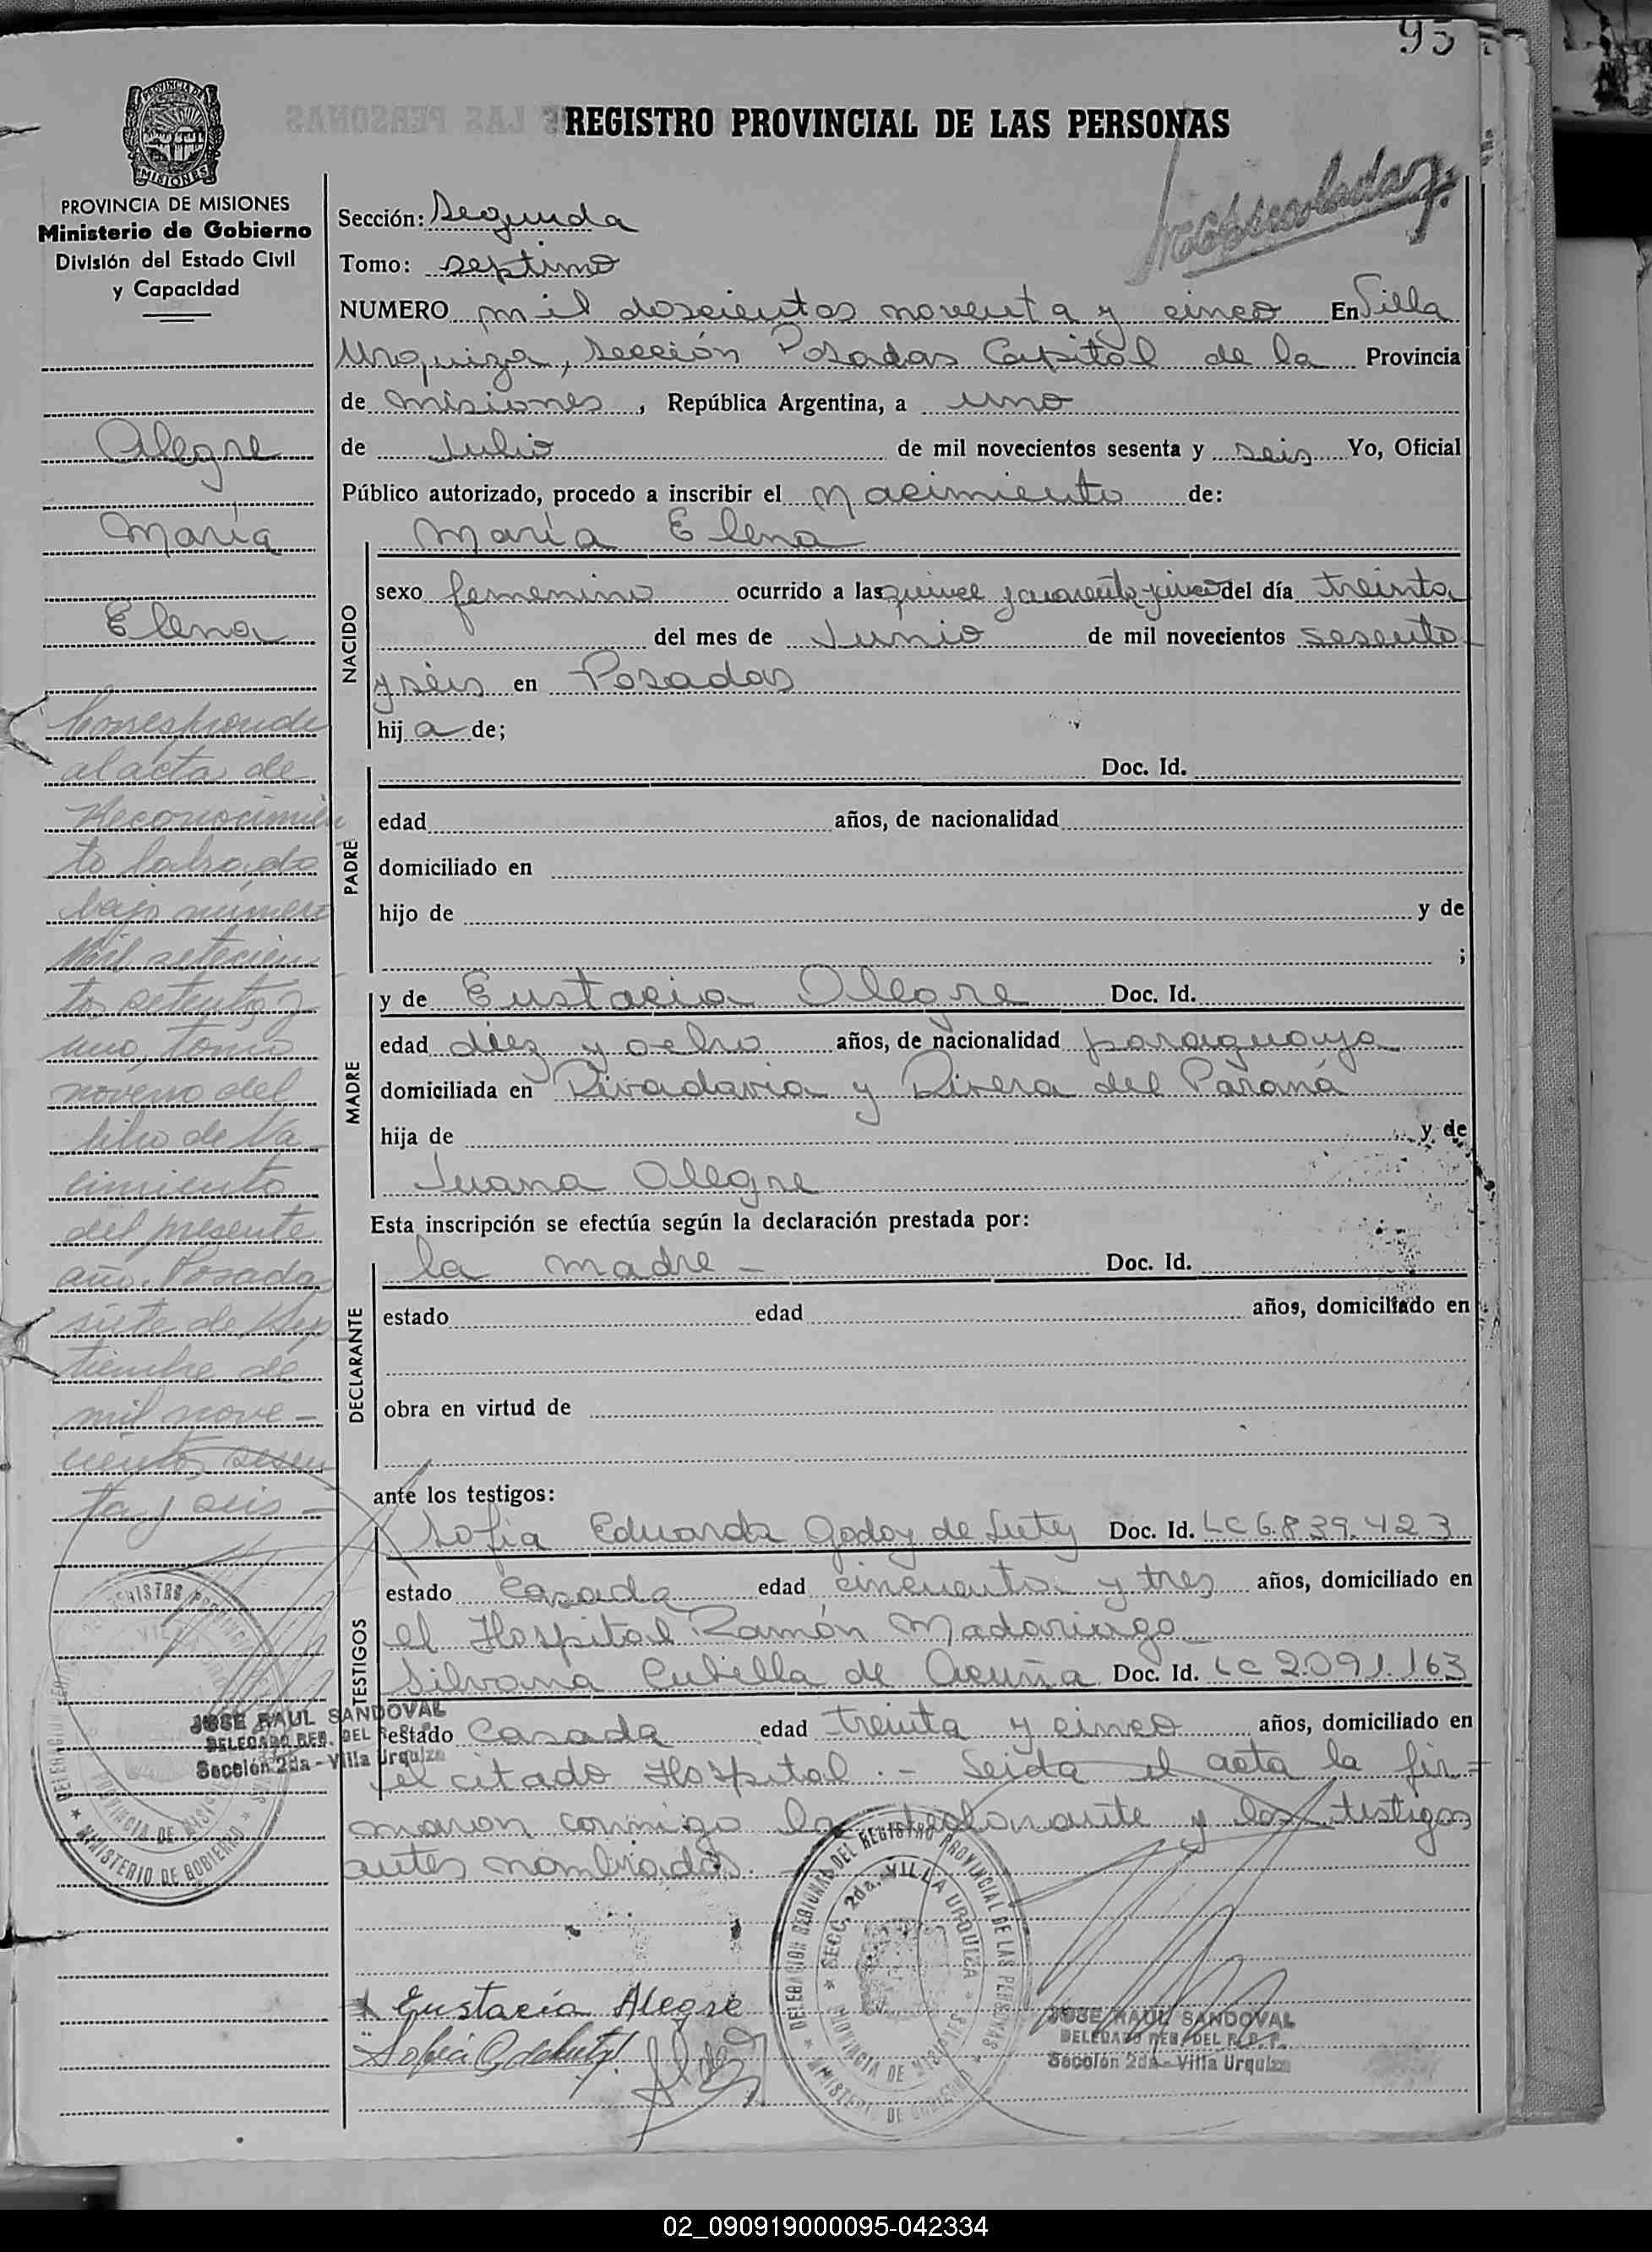 95
REGISTRO PROVINCIAL DE LAS PERSONAS
PROVINCIA DE MISIONES
Ministerio de Gobierno
División del Estado Civil
y Capacidad
Alegre
María
Elena
Corresponde
al acta de
Reconocimien
to labrado
bajo número
Mil setecien
tos setenta y
uno, tomo
noveno del
libro de Na
cimiento
del presente
año. Posadas
siete de Sep
tiembre de
mil nove-
cientos sesen
ta y seis -
Sección: Segunda
Tomo: septimo
NUMERO mil doscientos noventa y cinco En Villa
Urquiza, Sección Posadas Capital de la Provincia
de Misiones, República Argentina, a uno
de Julio de mil novecientos sesenta y seis Yo, Oficial
Público autorizado, procedo a inscribir el Nacimiento de:
María Elena
NACIDO
sexo femenino ocurrido a las quince y cuarenta y cinco del día treinta
del mes de Junio de mil novecientos sesenta
y seis en Posadas
hij a de;
PADRE
Doc. Id.
edad años, de nacionalidad
domiciliado en
hijo de y de
;
MADRE
y de Eustacia Alegre Doc. Id.
edad diez y ocho años, de nacionalidad paraguaya
domiciliada en Rivadavia y Rivera del Paraná
hija de y de
Juana Alegre
Esta inscripción se efectúa según la declaración prestada por:
DECLARANTE
la madre - Doc. Id.
estado edad años, domiciliado en
obra en virtud de
ante los testigos:
TESTIGOS
Sofia Eduarda Godoy de Doc. Id. LC 6.839.423
estado Casada edad cincuenta y tres años, domiciliado en
el Hospital Ramón Madariaga
Silvana Cubilla de Acuña Doc. Id. LC 2.091.163
estado Casada edad treinta y cinco años, domiciliado en
el citado Hospital. - Leida el acta la fir-
maron conmigo la declarante y los testigos
antes nombrados. -
JOSE RAUL SANDOVAL
DELEGADO REG. DEL R. P. P.
Sección 2da - Villa Urquiza
DELEGACION REGIONAL DEL REGISTRO PROVINCIAL DE LAS PERSONAS
SECC. 2da. VILLA URQUIZA
PROVINCIA DE MISIONES
MINISTERIO DE GOBIERNO
Eustacia Alegre
JOSE RAUL SANDOVAL
DELEGADO REG. DEL R. P. P.
Sección 2da - Villa Urquiza
02_090919000095-042334